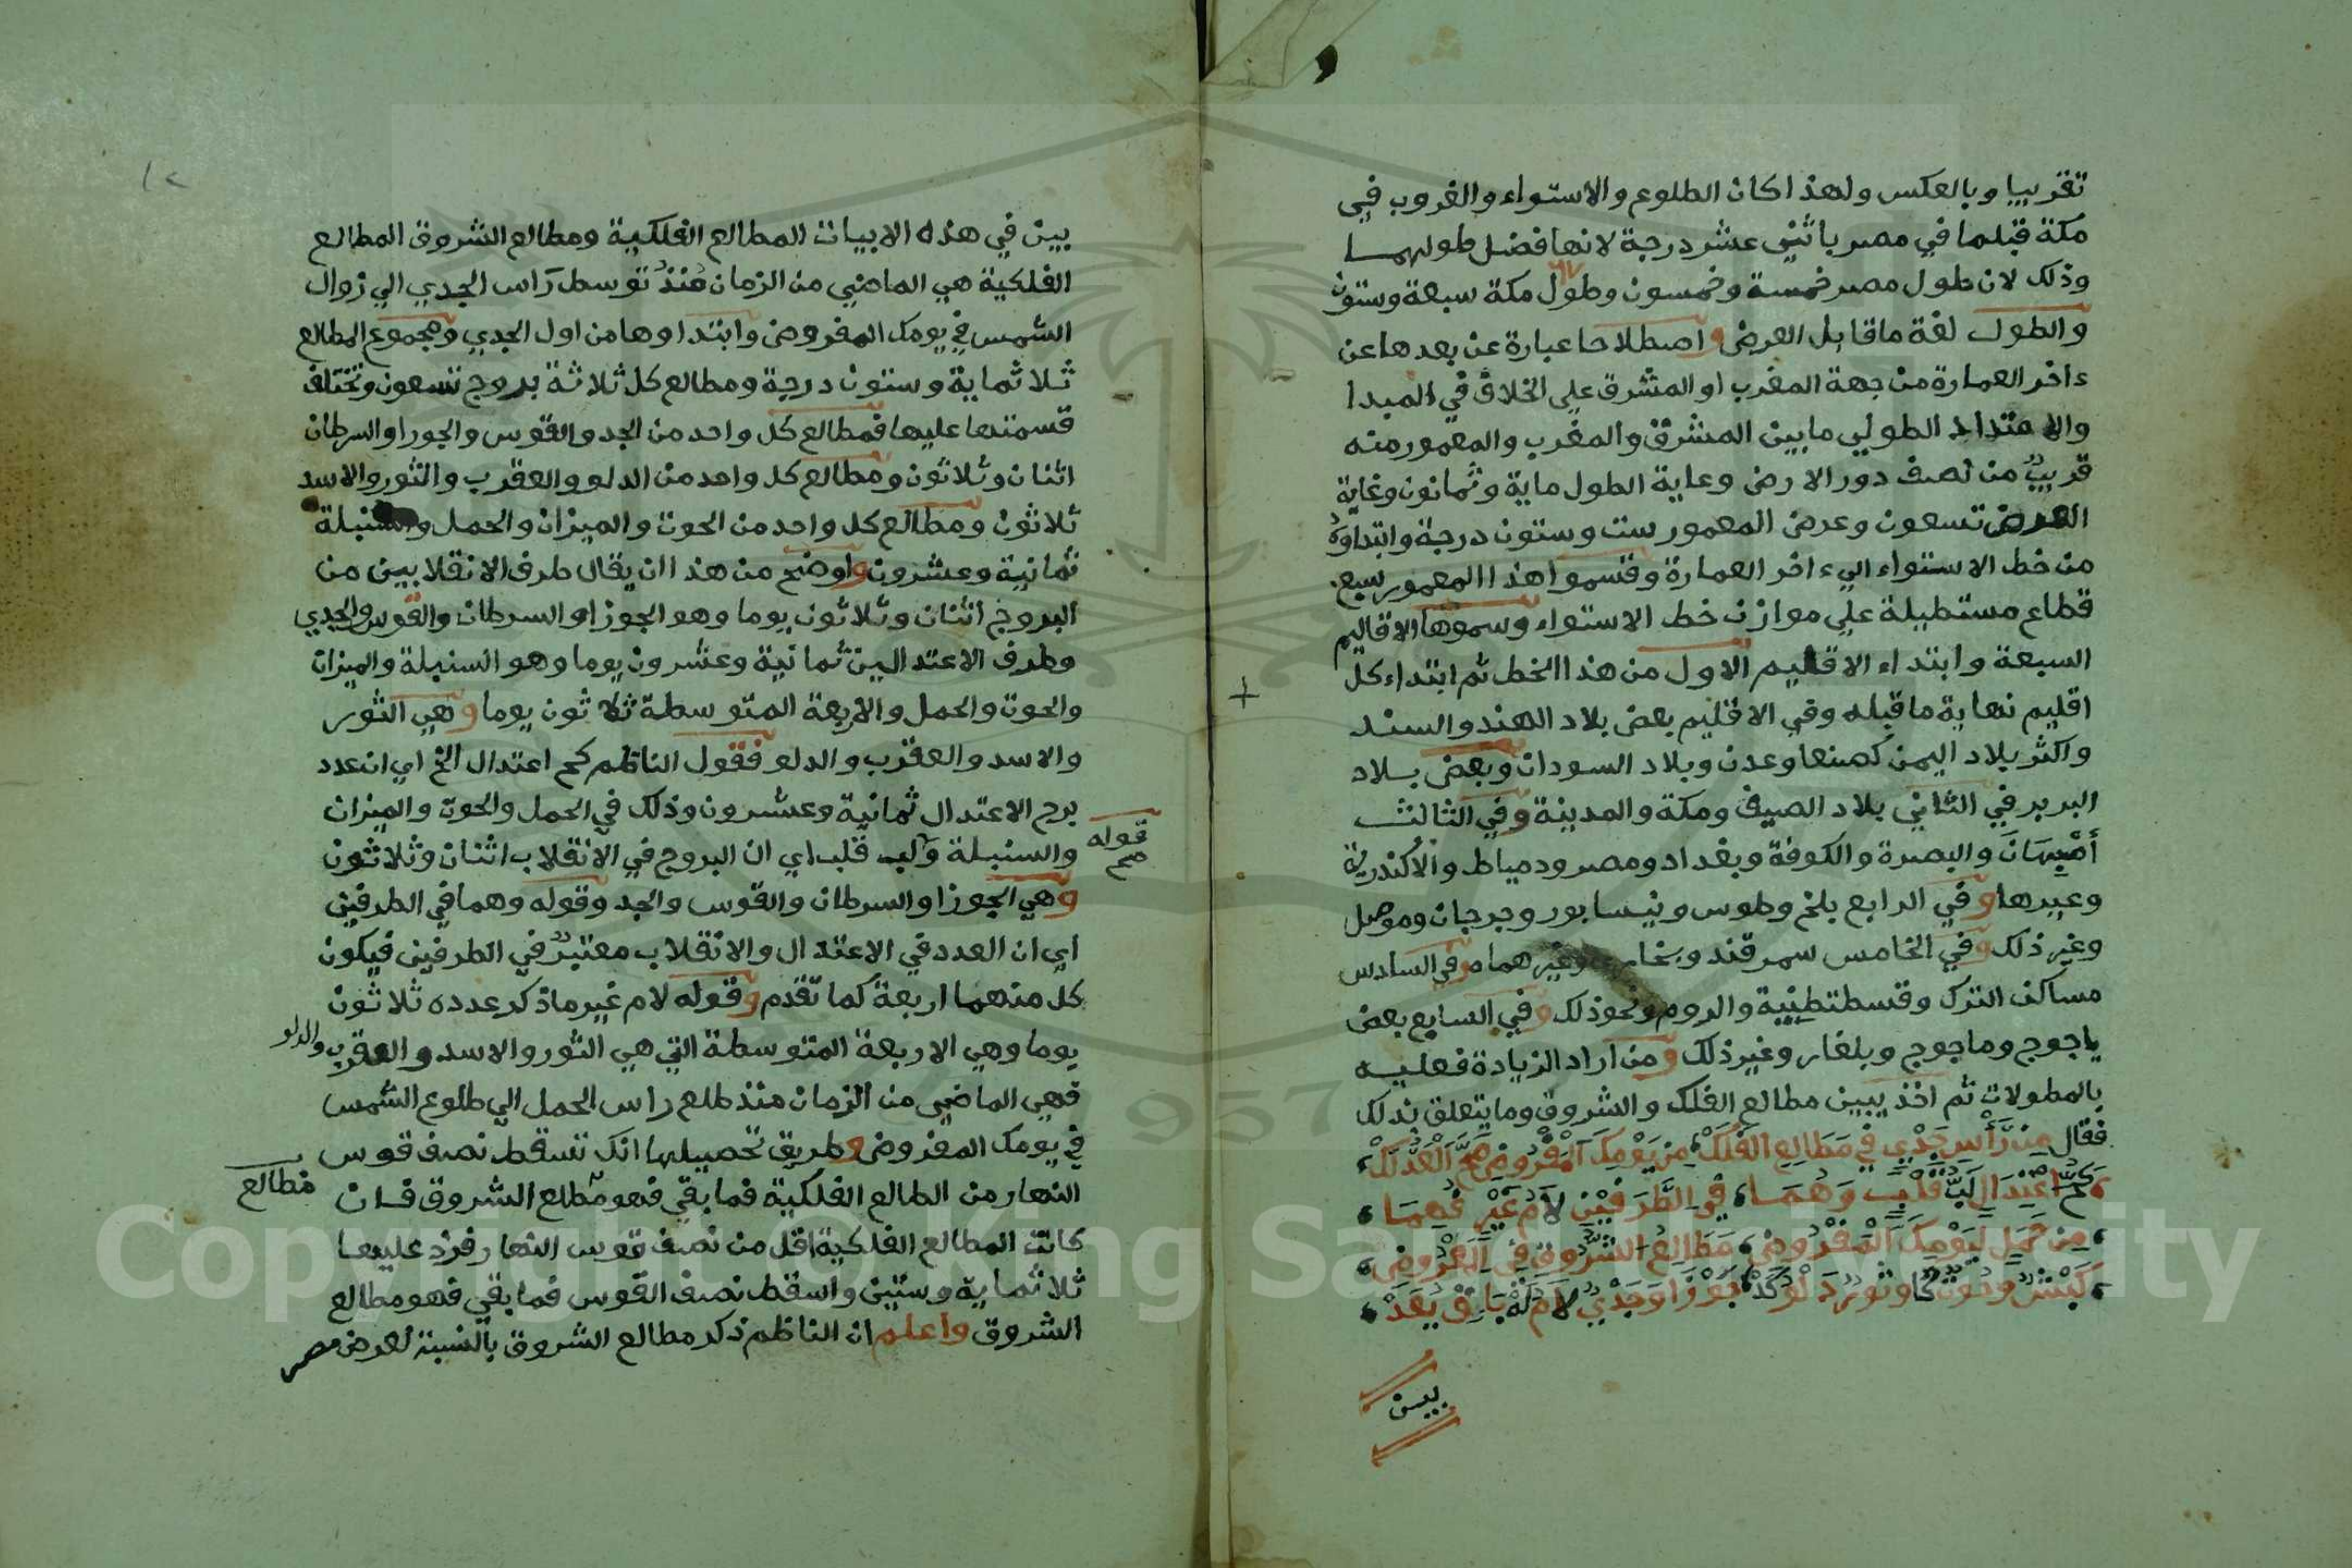 تقريبا وبالعكس ولهذا كان الطلوع والاستواء والغروب في
مكة قبلما في مصر باثني عشر درجة لانها فضل طولهما
وذلك لان طول مصر خمسة وخمسون وطول مكة سبعة وستون
والطول لغة ماقابل العرض واصطلاحا عبارة عن بعدها عن
ءاخر العمارة من جهة المغرب او المشرق علي الخلاف في المبدا
والامتداد الطولي مابين المشرق والمغرب والمعمور منه
قريب من نصف دور الارض وغاية الطول ماية وثمانون وغاية
العرض تسعون وعرض المعمور ست وستون درجة وابتداوه
من خط الاستواء الي ءاخر العمارة وقسموا هذا المعمور سبع
قطاع مستطيلة علي موازن خط الاستواء وسموها الاقاليم
السبعة وابتداء الاقليم الاول من هذا الخط ثم ابتداء كل
اقليم نهاية ماقبله وفي الاقليم بعض بلاد الهند والسند
واكثر بلاد اليمن كصنعا وعدن وبلاد السودان وبعض بلاد
البربر في الثاني بلاد الصيف ومكة والمدينة وفي الثالث
أصبهان والبصرة والكوفة وبغداد ومصر ودمياط والاكندرية
وغيرها وفي الرابع بلخ وطوس ونيسابور وجرجان وموصل
وغير ذلك وفي الخامس سمرقند وبخارى وغيرهما وفي السادس
مساكن الترك وقسطنطينية والروم ونحو ذلك وفي السابع بعض
ياجوج وماجوج وبلغار وغير ذلك ومن اراد الزيادة فعليه
بالمطولات ثم اخذ يبين مطالع الفلك والشروق ومايتعلق بذلك
فقال من رأس جدي في مطالع الفلك من يومك المفروض صح العدلك
كح اعتدال لب قلب وهما في الطرفين لام غير فهما
من حمل ليومك المفروض مطالع الشروق في العروض
كبش وحوت وثور دلو جوزا وجدي لام له باق يعد
بين
١٢
بين في هذه الابيات المطالع الفلكية ومطالع الشروق المطالع
الفلكية هي الماضي من الزمان منذ توسط رأس الجدي الي زوال
الشمس في يومك المفروض وابتداوها من اول الجدي ومجموع المطالع
ثلاثماية وستون درجة ومطالع كل ثلاثة بروج تسعون وتختلف
قسمتها عليها فمطالع كل واحد من الجد والقوس والجوزا والسرطان
اثنان وثلاثون ومطالع كل واحد من الدلو والعقرب والثور والاسد
ثلاثون ومطالع كل واحد من الحوت والميزان والحمل والسنبلة
ثمانية وعشرون واوضح من هذا ان يقال طرف الانقلابين من
البروج اثنان وثلاثون يوما وهو الجوزا والسرطان والقوس والجدي
وطرف الاعتدالين ثمانية وعشرون يوما وهو السنبلة والميزان
والحوت والحمل والاربعة المتوسطة ثلاثون يوما وهي الثور
والاسد والعقرب والدلو فقول الناظم كح اعتدال الخ اي ان عدد
برج الاعتدال ثمانية وعشرون وذلك في الحمل والحوت والميزان
قوله صح
والسنبلة ولب قلب اي ان البروج في الانقلاب اثنان وثلاثون
وهي الجوزا والسرطان والقوس والجد وقوله وهما في الطرفين
اي ان العدد في الاعتدال والانقلاب معتبر في الطرفين فيكون
كل منهما اربعة كما تقدم وقوله لام غير ماذكر عدده ثلاثون
يوما وهي الاربعة المتوسطة التي هي الثور والاسد والعقرب والدلو
فهي الماضي من الزمان منذ طلع راس الحمل الي طلوع الشمس
في يومك المفروض وطريق تحصيلها انك تسقط نصف قوس
النهار من الطالع الفلكية فما بقي فهو مطلع الشروق فان
مطالع
كانت المطالع الفلكية اقل من نصف قوس النهار فزد عليها
ثلاثماية وستين واسقط نصف القوس فما بقي فهو مطالع
الشروق واعلم ان الناظم ذكر مطالع الشروق بالنسبة لعرض مصر
Copyright © King Saud University
1957